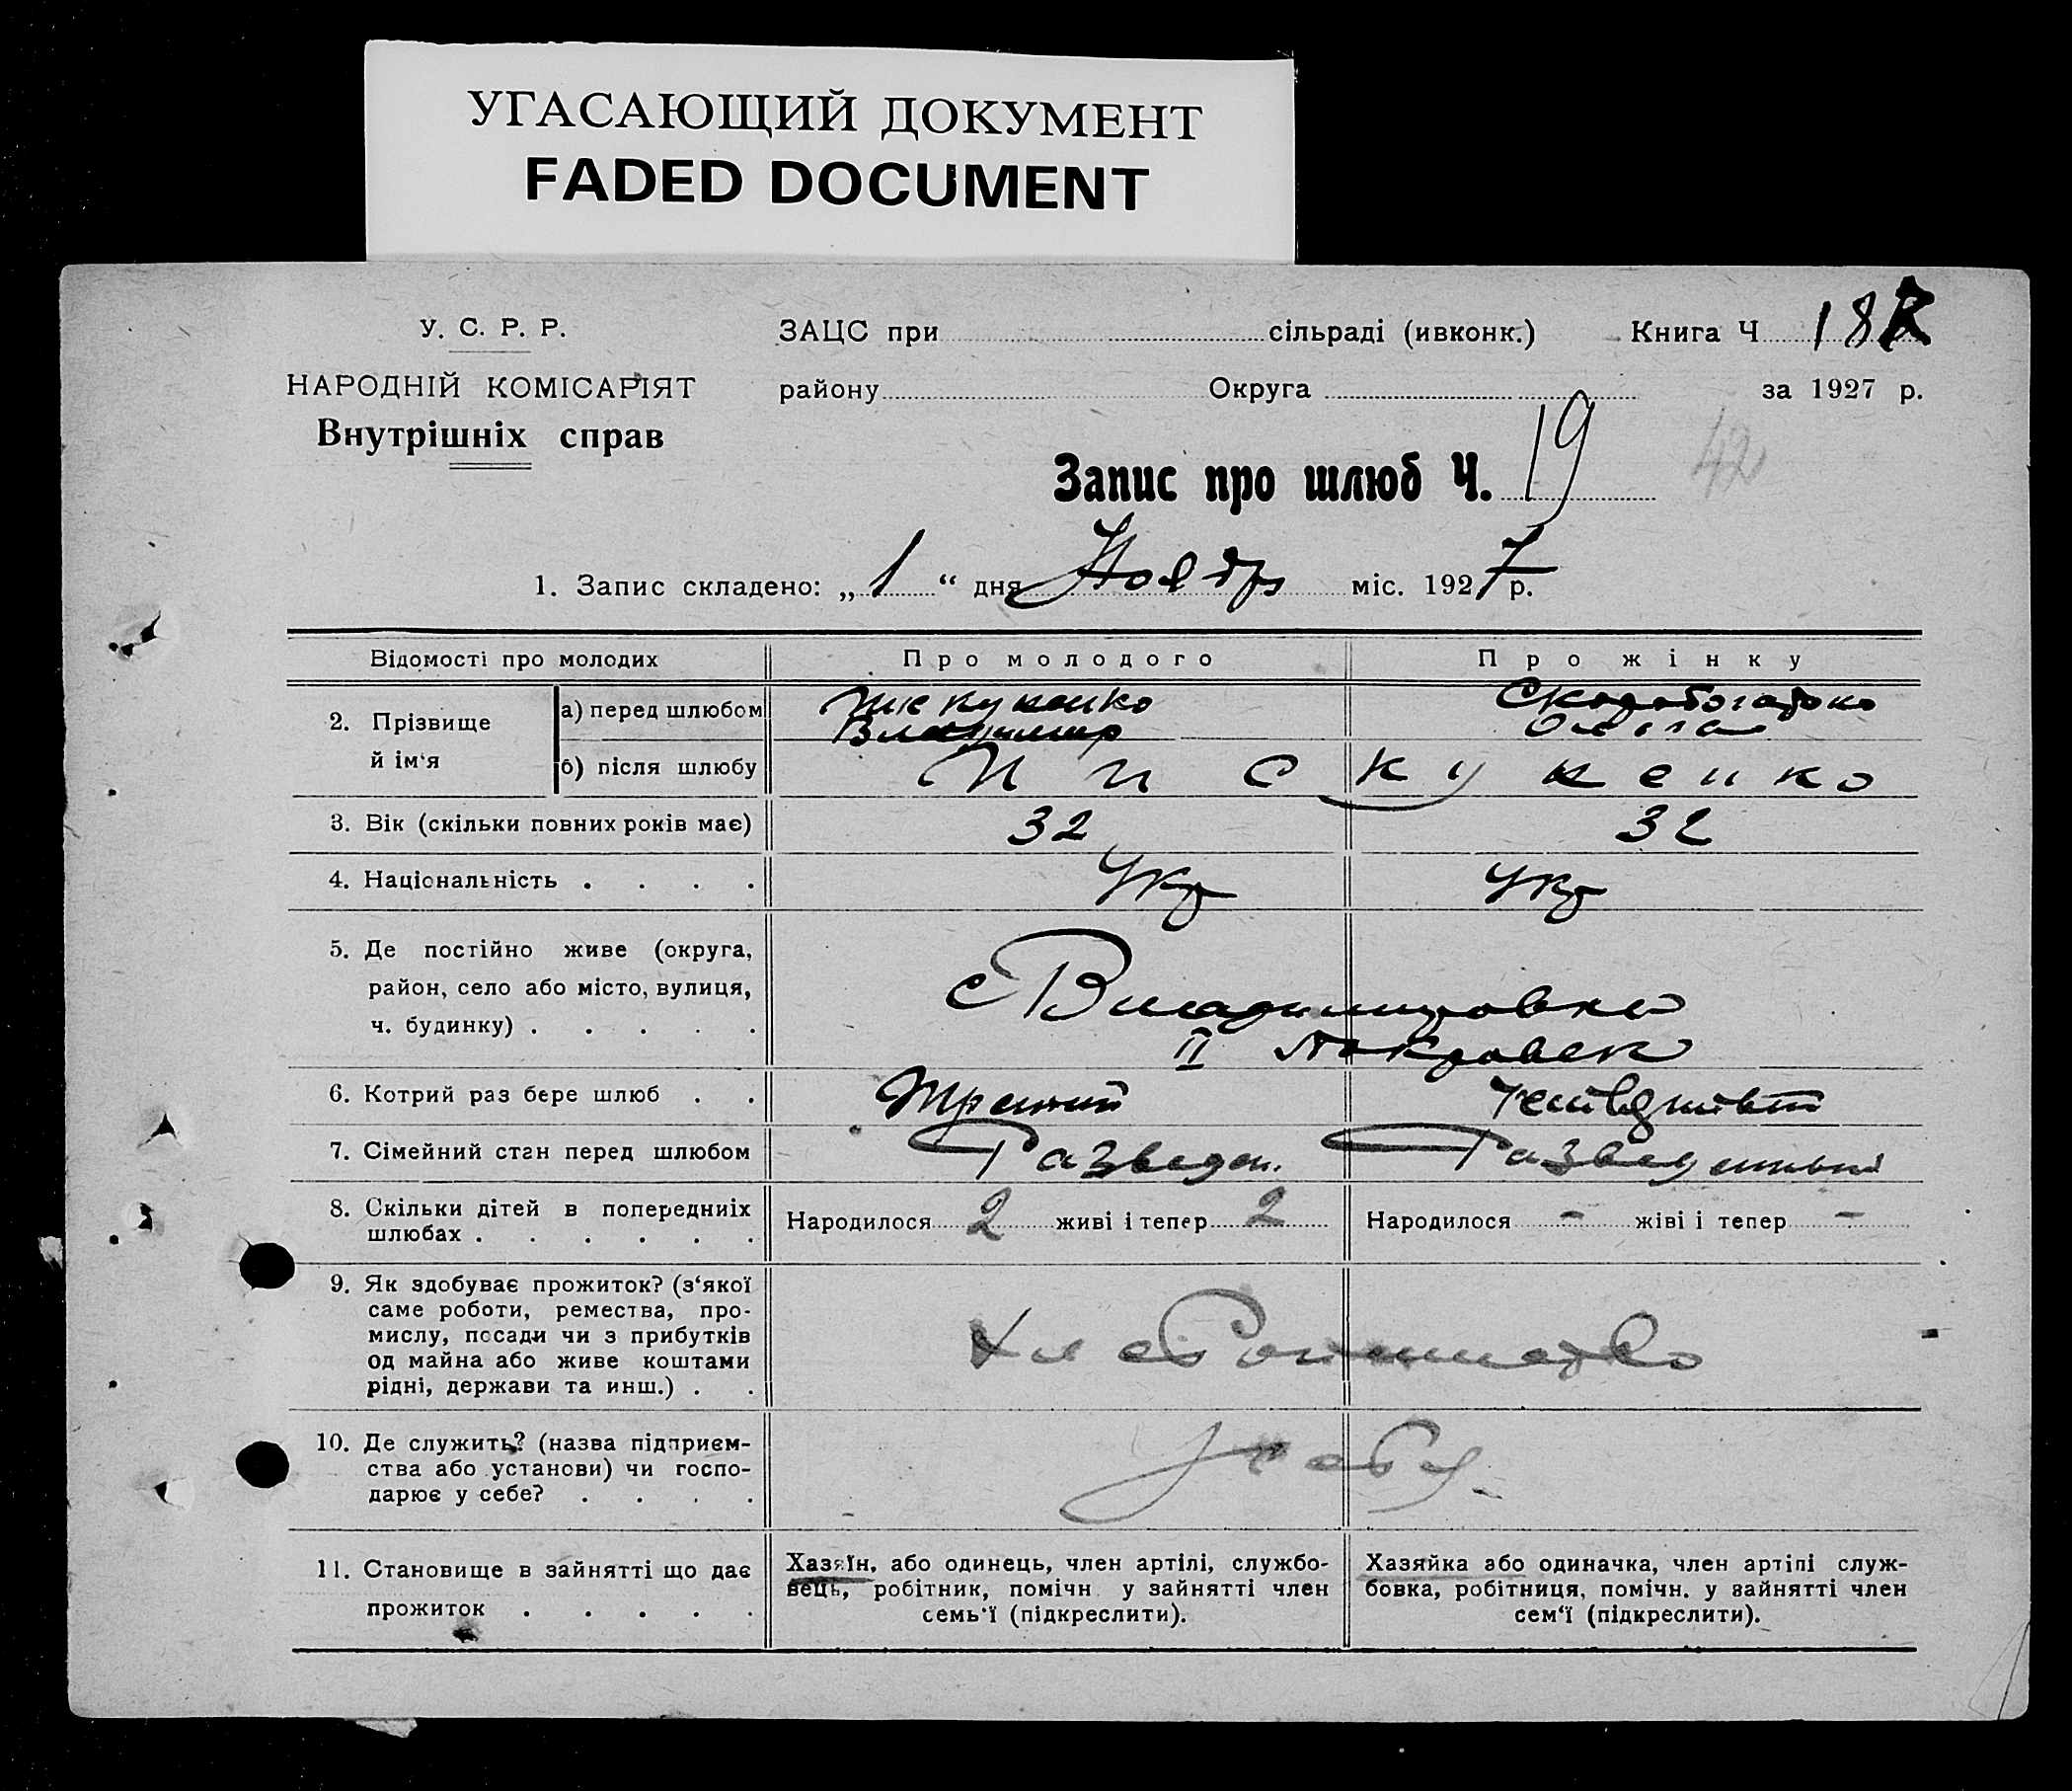 УГАСАЮЩИЙ ДОКУМЕНТ
FADED DOCUMENT
У. С. Р. Р.
НАРОДНІЙ КОМІСАРІЯТ
Внутрішніх справ
ЗАЦС при сільраді (ивконк.) Книга Ч 18
району Округа за 1927 р.
42
Запис про шлюб Ч. 19
1. Запис складено: „ 1 “ дня Ноябр міс. 1927 р.
Відомості про молодих Про молодого Про жінку
2. Прізвище й ім‘я
а) перед шлюбом Владимир
б) після шлюбу
3. Вік (скільки повних років має) 32 32
4. Національність . . . . Укр Укр
5. Де постійно живе (округа,
район, село або місто, вулиця,
ч. будинку) . . . . .
с Владимировки
II Покровск
6. Котрий раз бере шлюб . . Третий
7. Сімейний стан перед шлюбом Разведен.
8. Скільки дітей в попередніх
шлюбах . . . . . .
Народилося 2 живі і тепер 2 Народилося - жіві і тепер -
9. Як здобуває прожиток? (з‘якої
саме роботи, ремества, про-
мислу, посади чи з прибутків
од майна або живе коштами
рідні, держави та инш.) . .
Хлебопашество
10. Де служить? (назва підприєм-
ства або установи) чи госпо-
дарює у себе? . . . .
11. Становище в зайнятті що дає
прожиток . . . . .
Хазяїн, або одинець, член артілі, службо-
вець, робітник, помічн у зайнятті член
семь‘ї (підкреслити).
Хазяйка або одиначка, член артілі служ-
бовка, робітниця, помічн. у зайнятті член
сем‘ї (підкреслити).